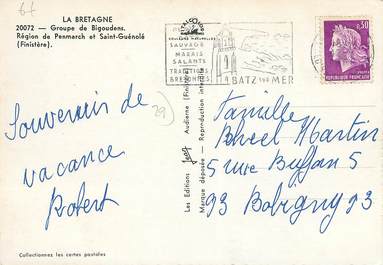 LA BRETAGNE
20072 — Groupe de Bigoudens.
Région de Penmarch et Saint-Guénolé
(Finistère).
29
Souvenir de
vacance
Robert
Collectionnez les cartes postales
Les Editions Jos Audierne (Finistère)
Marque déposée - Reproduction interdite
SAUVAGE
MARAIS
SALANTS
TRADITIONS
BRETONNES
BATZ SUR MER
0,30
Famille
Martin
5 rue Buffon 5
93 Bobigny 93